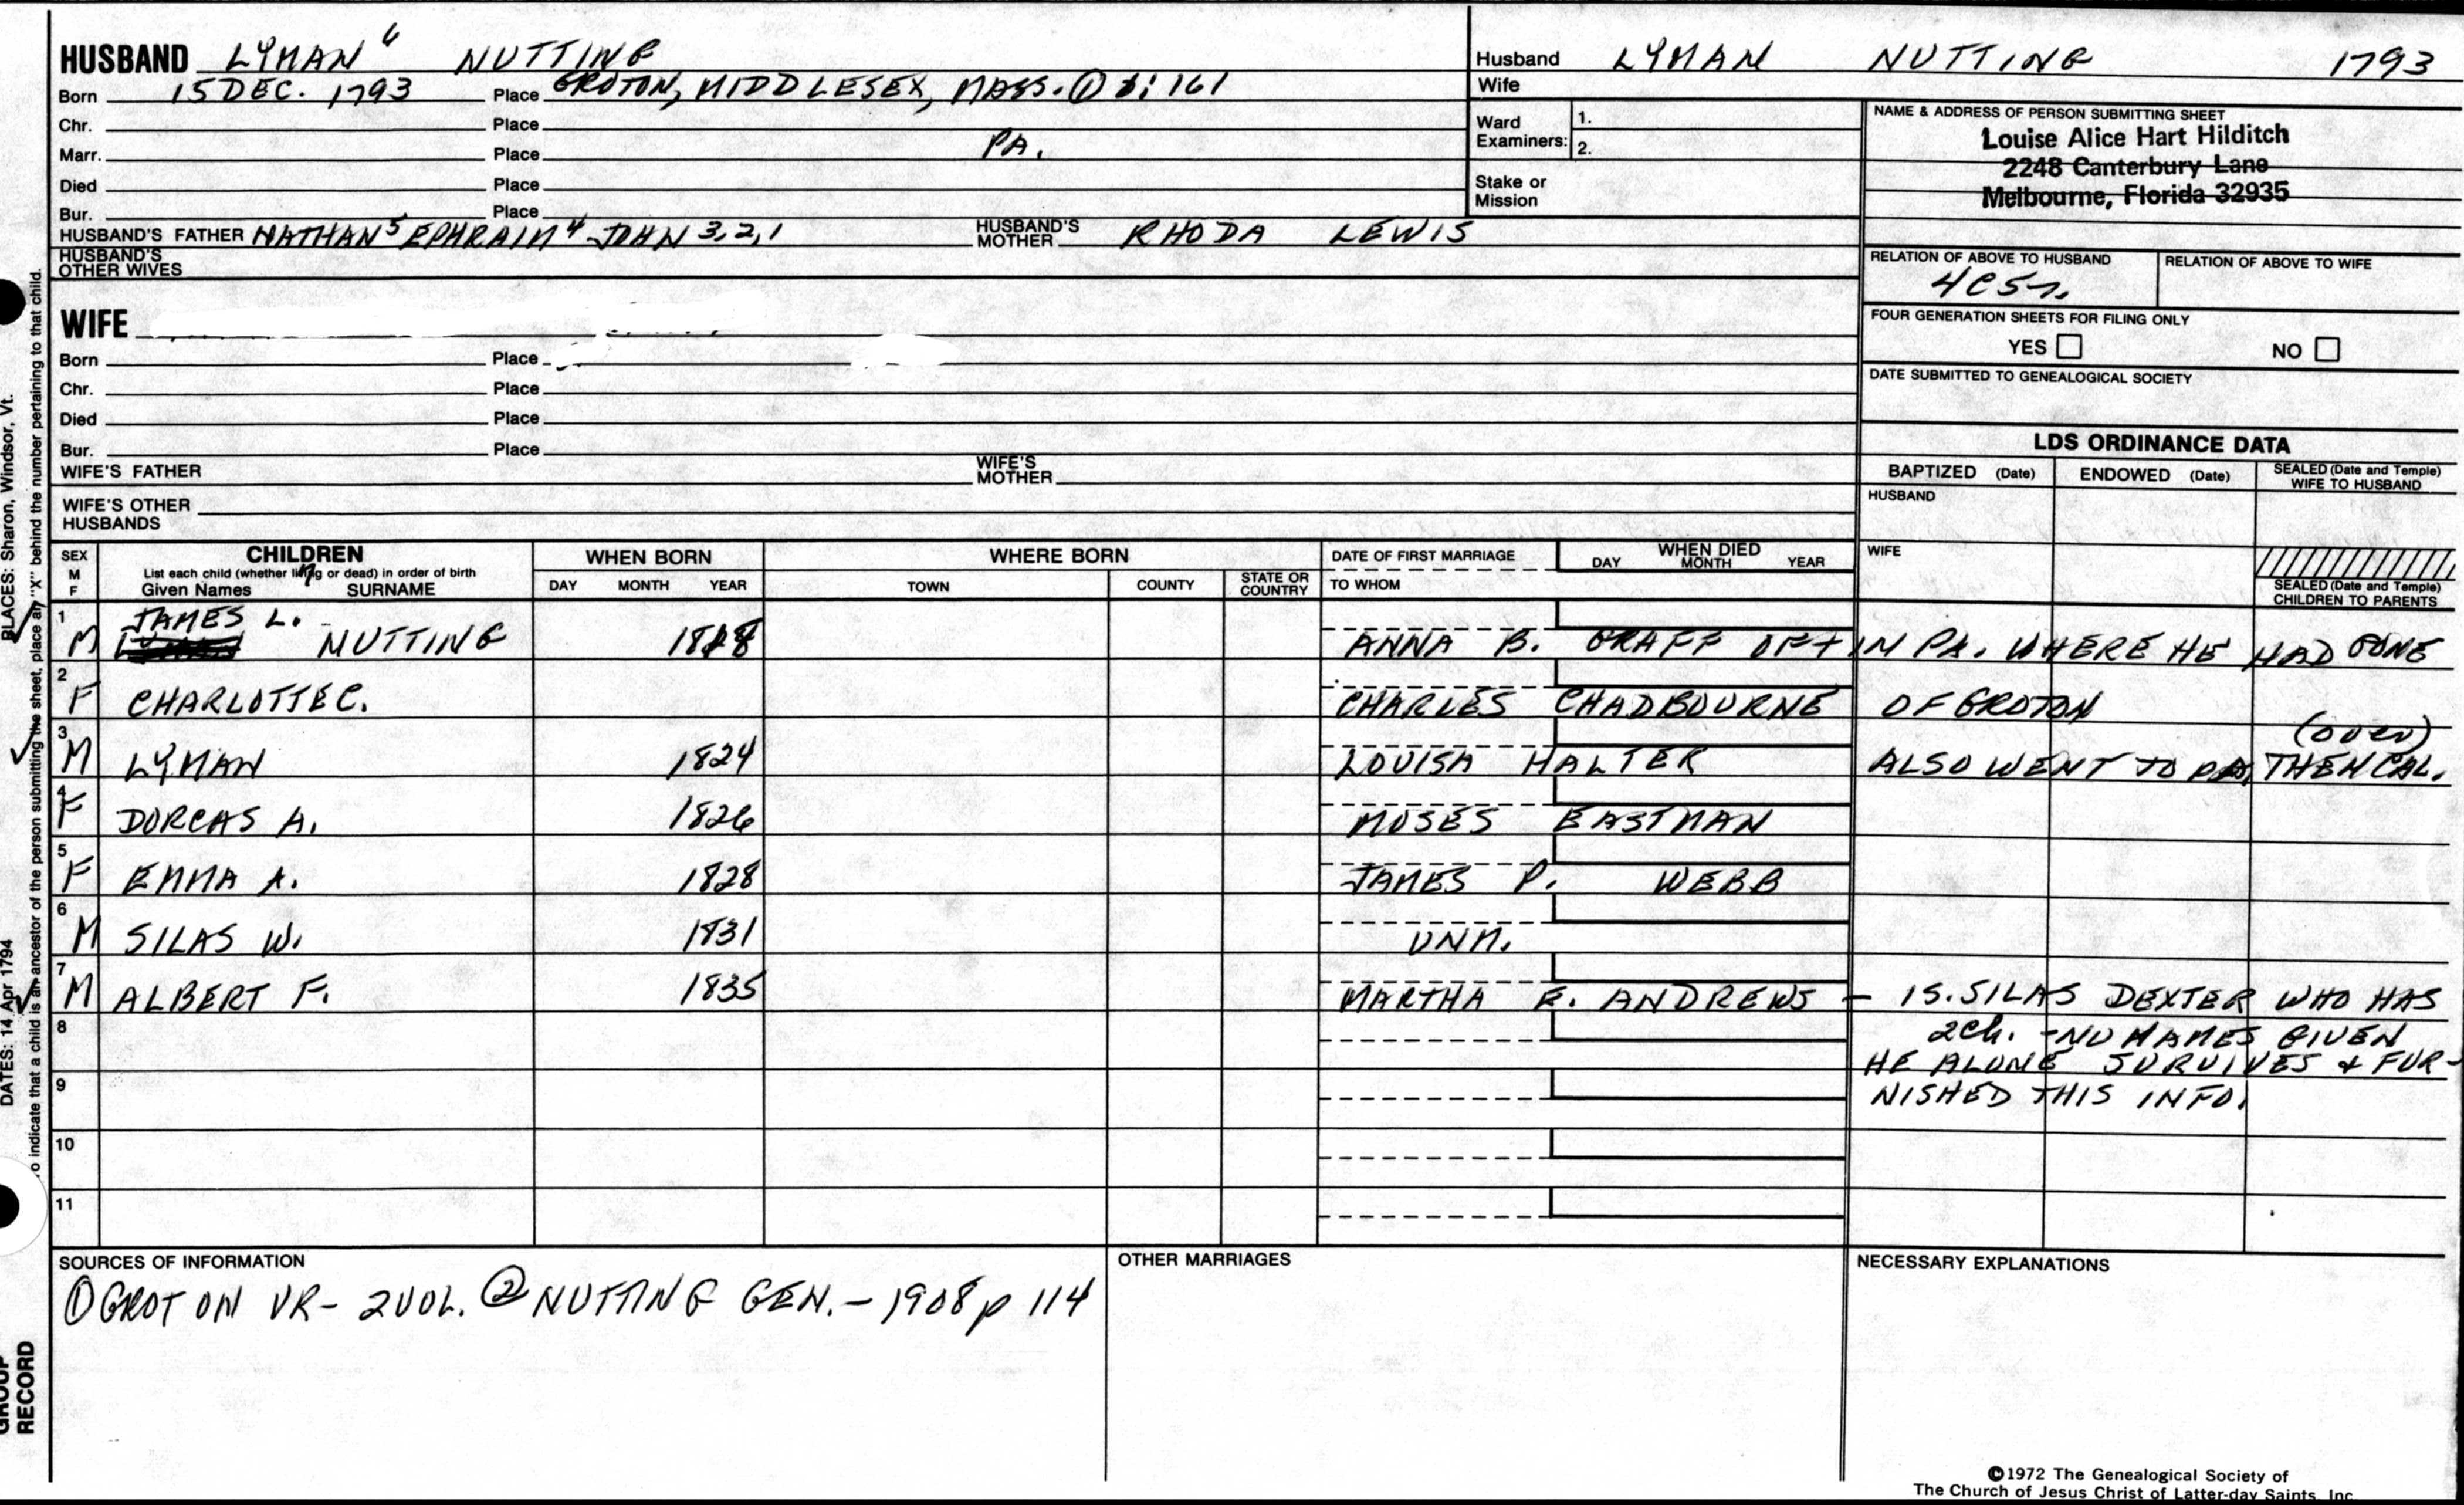 HUSBAND LYMAN 6 NUTTING
Born 15 DEC. 1793 Place GROTON, MIDDLESEX, MASS. ① 1:161
Chr. Place
Marr. Place PA.
Died Place
Bur. Place
HUSBAND'S FATHER NATHAN 5 EPHRAIM 4 JOHN 3,2,1 HUSBAND'S MOTHER RHODA LEWIS
HUSBAND'S OTHER WIVES
Husband LYMAN NUTTING 1793
Wife
Ward Examiners: 1.
2.
Stake or Mission
NAME & ADDRESS OF PERSON SUBMITTING SHEET
Louise Alice Hart Hilditch
2248 Canterbury Lane
Melbourne, Florida 32935
RELATION OF ABOVE TO HUSBAND RELATION OF ABOVE TO WIFE
4C5r.
FOUR GENERATION SHEETS FOR FILING ONLY
YES NO
DATE SUBMITTED TO GENEALOGICAL SOCIETY
WIFE
Born Place
Chr. Place
Died Place
Bur. Place
WIFE'S FATHER WIFE'S MOTHER
WIFE'S OTHER HUSBANDS
LDS ORDINANCE DATA
BAPTIZED (Date) ENDOWED (Date) SEALED (Date and Temple) WIFE TO HUSBAND
HUSBAND
WIFE
SEALED (Date and Temple) CHILDREN TO PARENTS
SEX M F CHILDREN WHEN BORN WHERE BORN DATE OF FIRST MARRIAGE WHEN DIED
List each child (whether living or dead) in order of birth
Given Names SURNAME DAY MONTH YEAR TOWN COUNTY STATE OR COUNTRY TO WHOM DAY MONTH YEAR
1 JAMES L.
M NUTTING 1818 ANNA B. GRAFF OFT IN PA. WHERE HE HAD GONE
2 F CHARLOTTE C. CHARLES CHADBOURNE OF GROTON
(over)
3 M LYMAN 1824 LOUISA HALTER ALSO WENT TO PA, THEN CAL.
4 F DORCAS A. 1826 MOSES EASTMAN
5 F EMMA A. 1828 JAMES P. WEBB
6 M SILAS W. 1831 UNM.
7 M ALBERT F. 1835 MARTHA E. ANDREWS – 1S. SILAS DEXTER WHO HAS
8 2 ch. - NO NAMES GIVEN
HE ALONE SURVIVES & FUR-
9 NISHED THIS INFO.
10
11
SOURCES OF INFORMATION OTHER MARRIAGES NECESSARY EXPLANATIONS
① GROTON VR- 2VOL. ② NUTTING GEN. - 1908 p 114
©1972 The Genealogical Society of
The Church of Jesus Christ of Latter-day Saints, Inc.
PLACES: Sharon, Windsor, Vt.
DATES: 14 Apr 1794
To indicate that a child is an ancestor of the person submitting the sheet, place an "X" behind the number pertaining to that child.
GROUP
RECORD